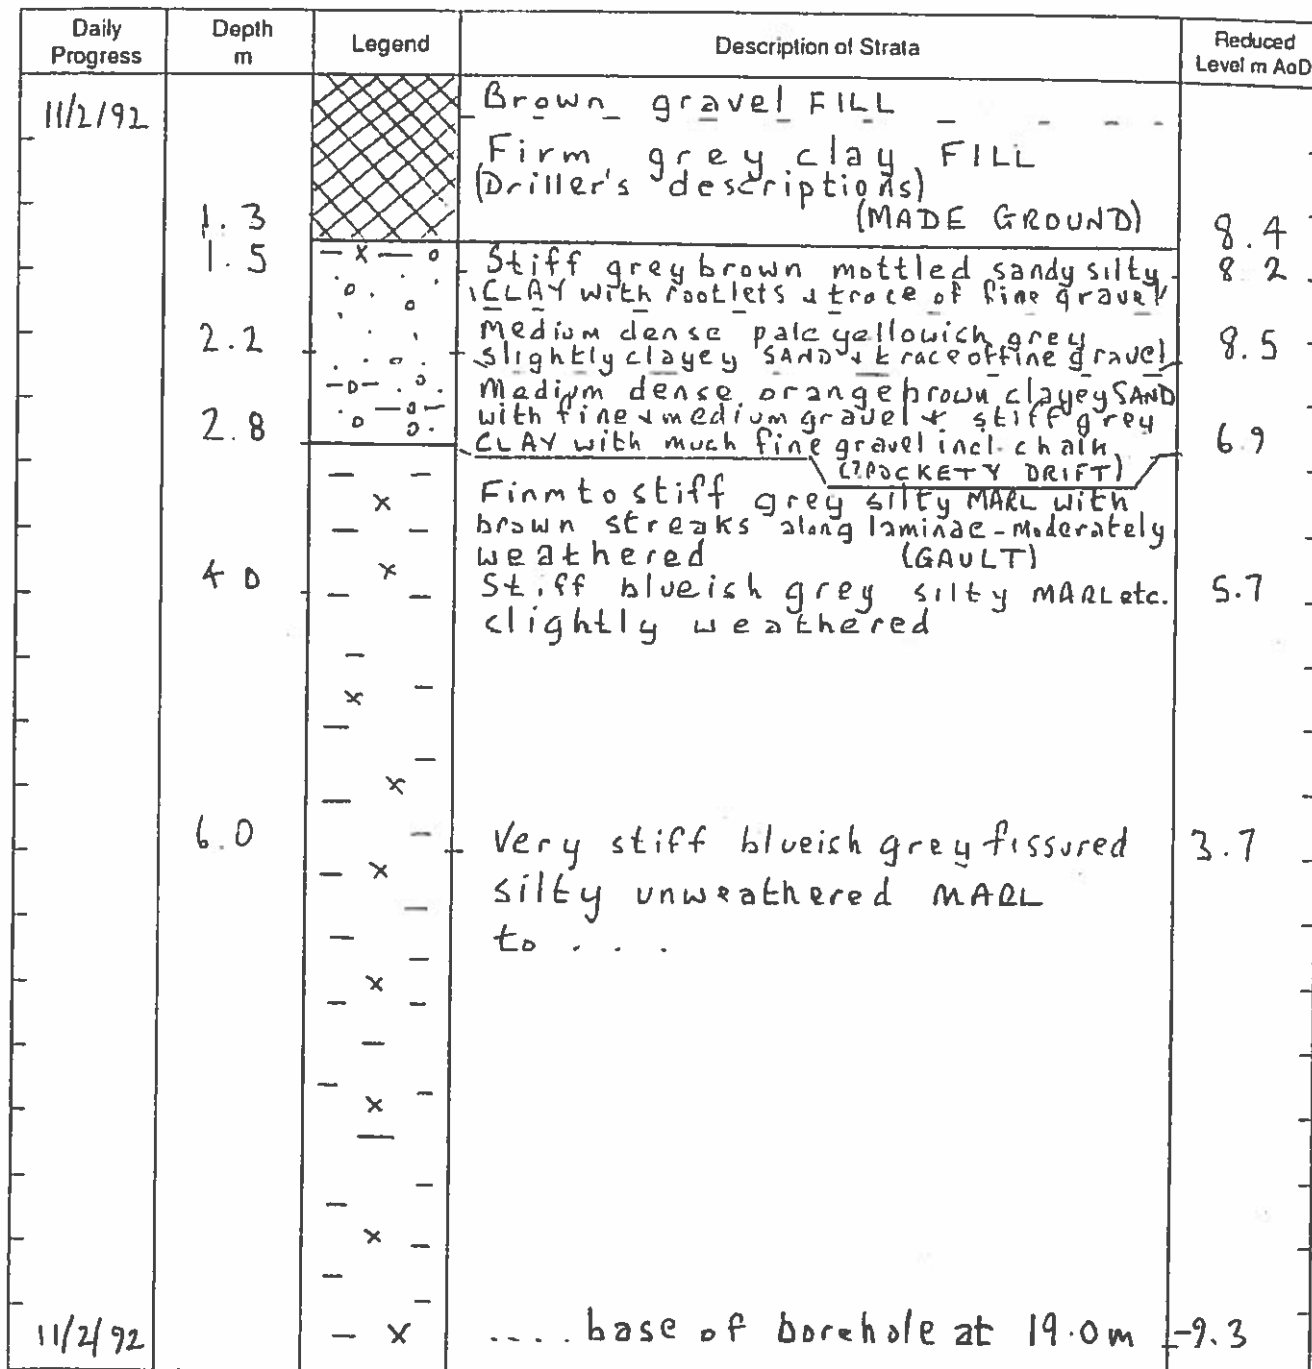 Daily Progress
Depth m
Legend
Description of Strata
Reduced Level m AoD
11/2/92
Brown gravel FILL
Firm grey clay FILL
(Driller's descriptions)
1.3 (MADE GROUND) 8.4
1.5 Stiff grey brown mottled sandy silty 8.2
CLAY with rootlets & trace of fine gravel
2.2 Medium dense pale yellowich grey 8.5
slightly clayey SAND & trace of fine gravel
Medium dense orange brown clayey SAND
with fine & medium gravel & stiff grey
2.8 CLAY with much fine gravel incl. chalk 6.9
(?POCKETY DRIFT)
Firm to stiff grey silty MARL with
brown streaks along laminae - Moderately
weathered (GAULT)
4.0 Stiff blueish grey silty MARL etc. 5.7
slightly weathered
6.0 Very stiff blueish grey fissured 3.7
silty unweathered MARL
to . . .
11/2/92 .... base of borehole at 19.0m -9.3